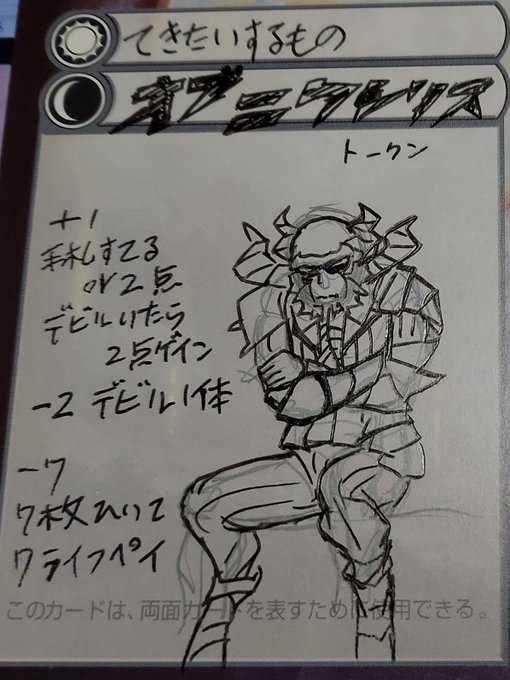 てきたいするもの
オブニクシリス
トークン
+1
手札すてる
or 2点
デビルいたら
2点ゲイン
-2 デビル1体
-7
7枚ひいて
7ライフペイ
このカードは、両面カードを表すために使用できる。